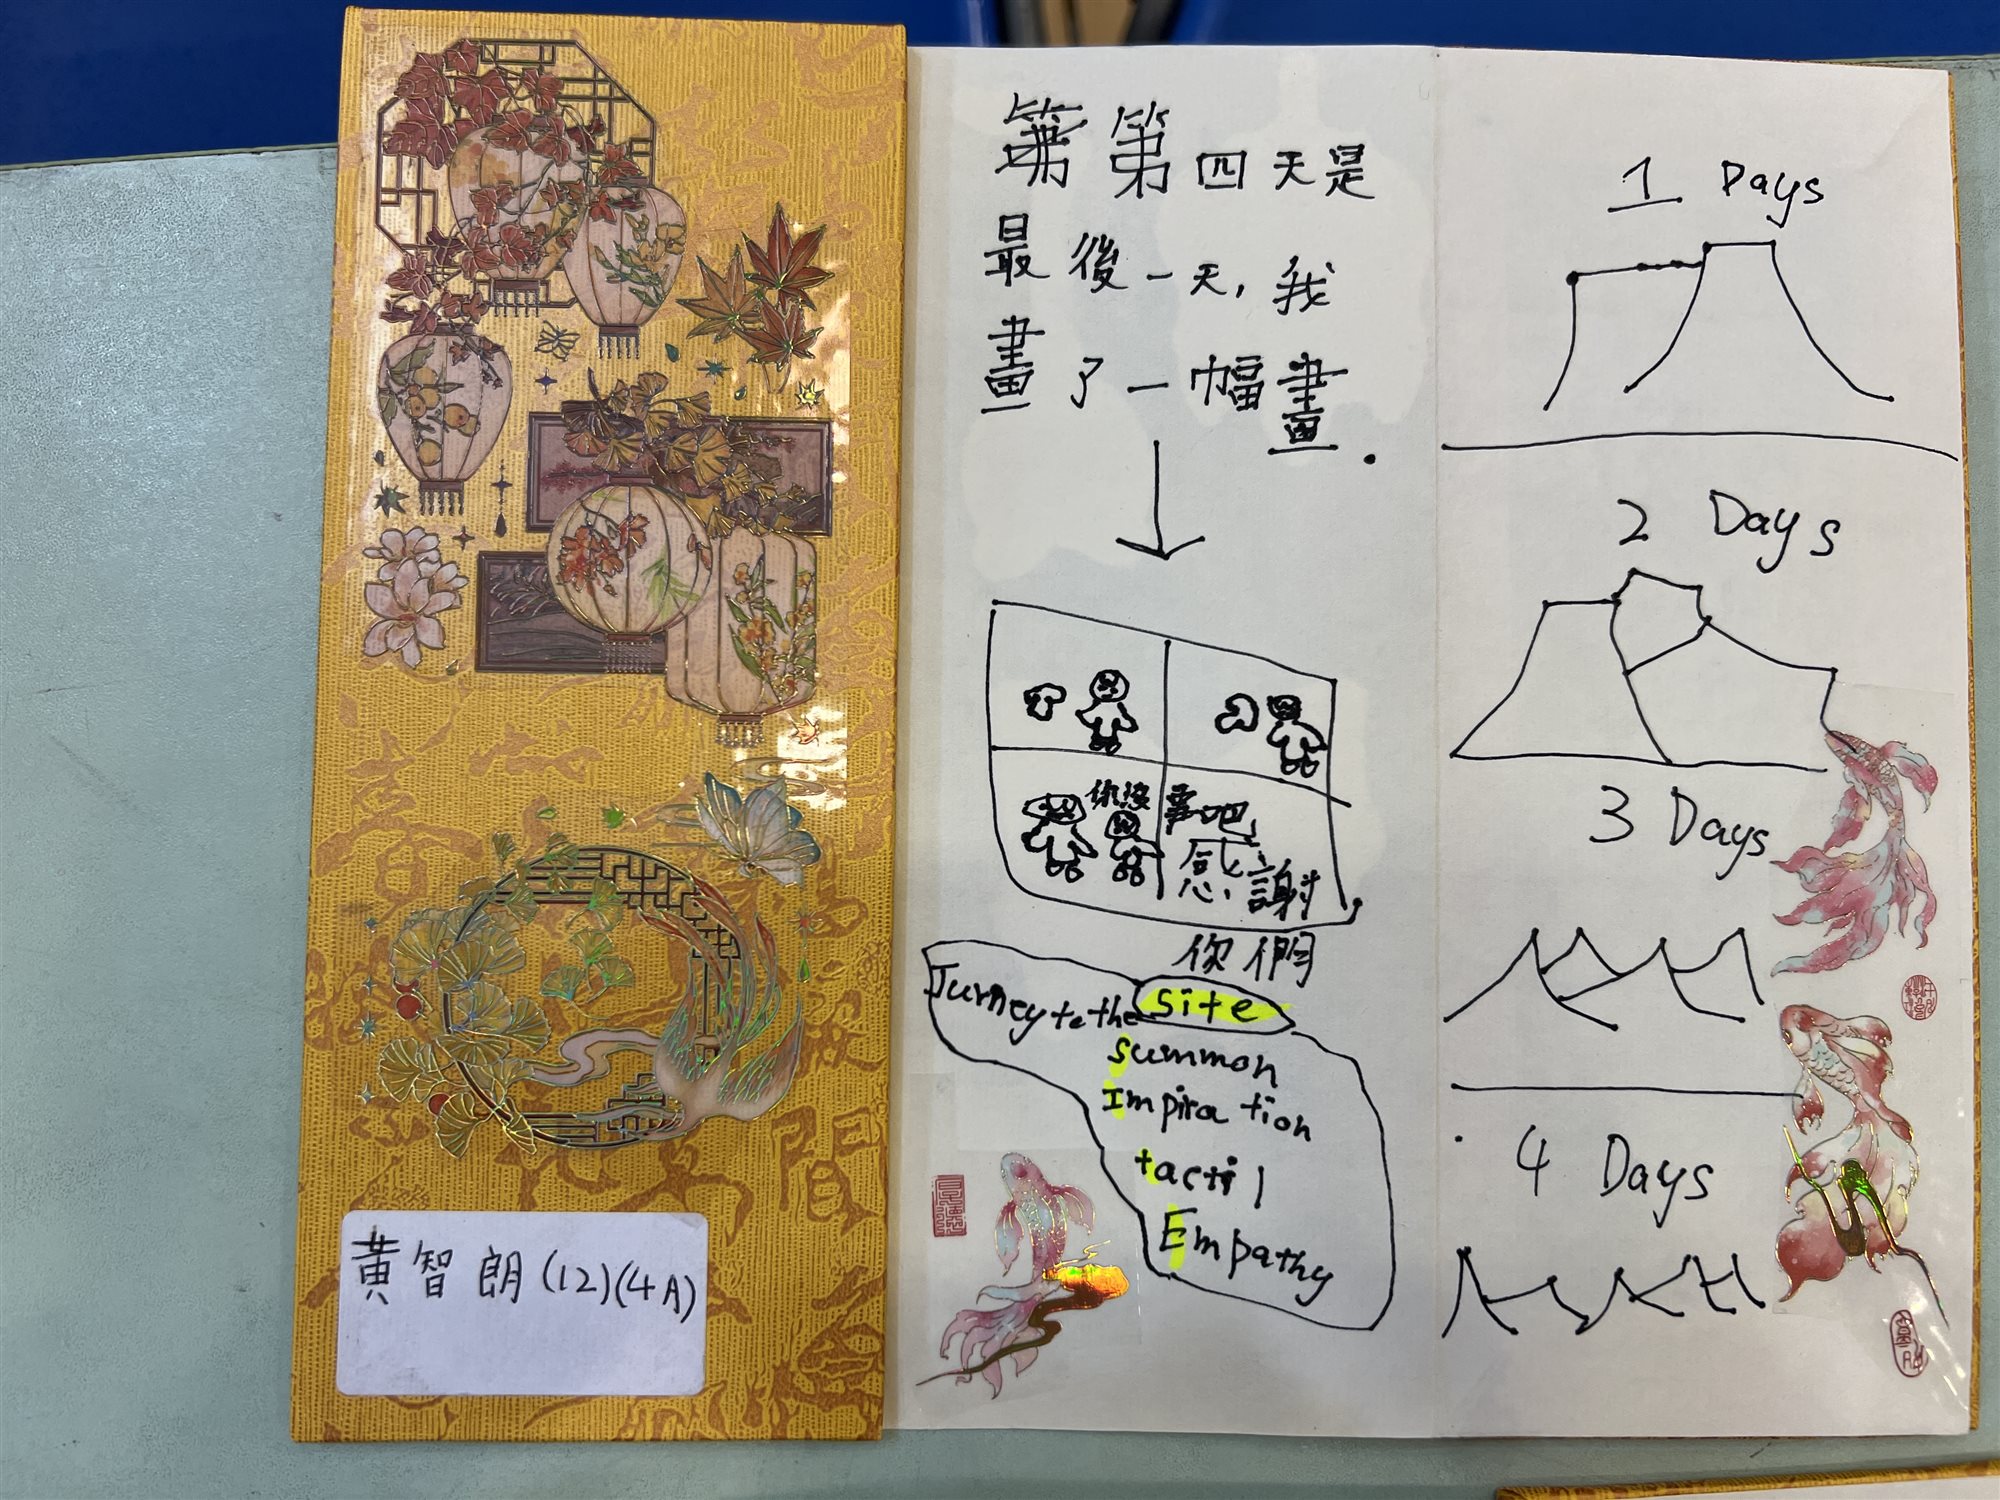 黃智朗(12)(4A)
第四天是
最後一天,我
畫了一幅畫.
你沒事吧
感謝
你們
Jurney to the site
summon
Impiration
tactil
Empathy
1 Days
2 Days
3 Days
4 Days